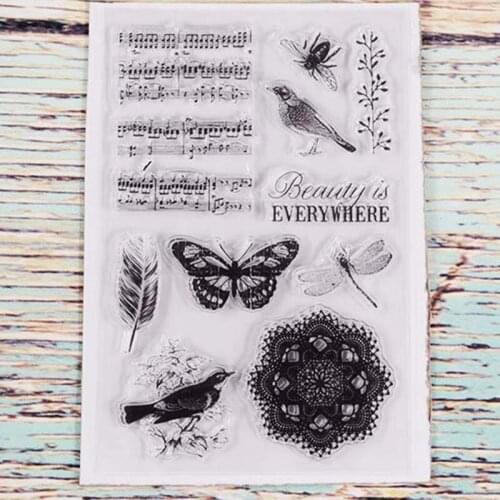 Beauty is
EVERYWHERE